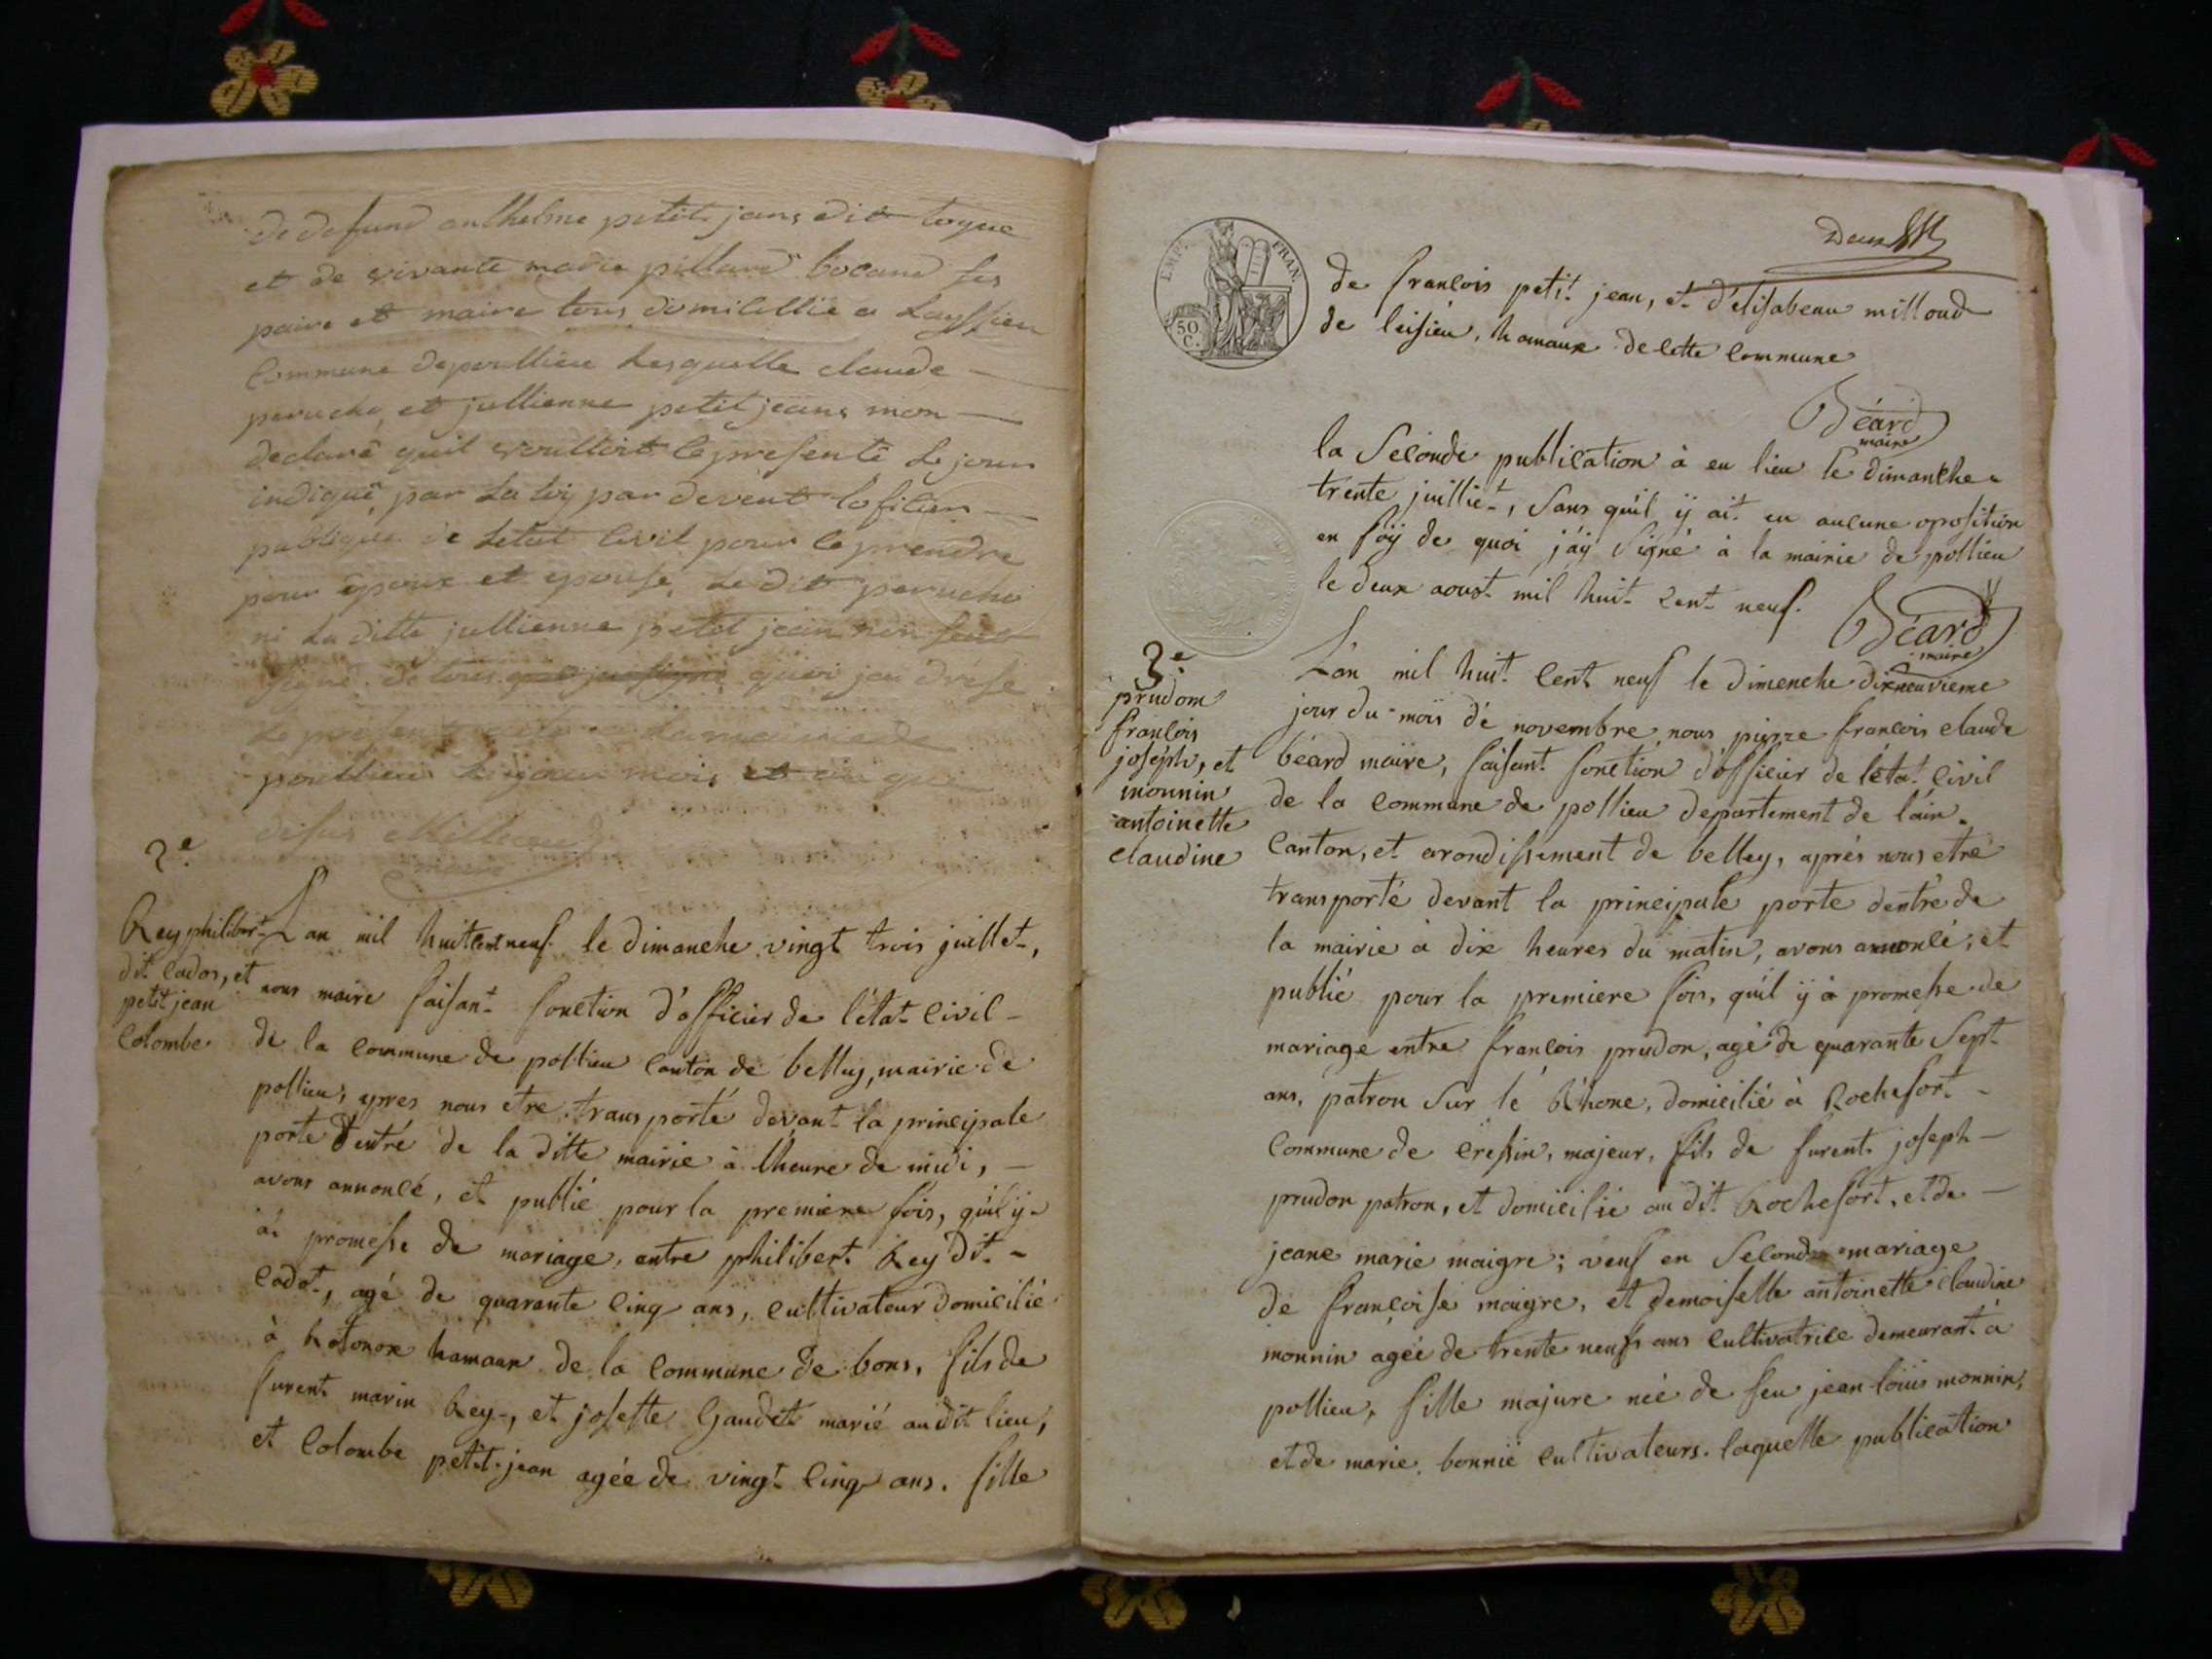 de defund anthelme petit jans dit toque
et de vivante marie pillard bocand ses
paire et maire tous domicillié a Layssieu
Commune depoullieu Lesquelle claude
peruche, et jullienne petit jeans mon
declaré quil voulloit ce presenté Le jour
indiqué, par La loy par devent lofficier
publique de Letat Civil pour ce prendre
pour époux et epouse, Le dit peruche
ni La ditte jullienne petit jean non
signé de quoi jeu drésé
Le present acte a La mairie de
poullieu Le jour mois et an que
desus
maire
2e
Rey philibert
dit cados, et
petit jean
Colombe
L'an mil huit cent neuf le dimanche vingt trois juillet,
nous maire faisant fonction d'officier de l'état civil
de la commune de pollieu canton de belley, mairie de
pollieu, apres nous etre transporté devant la principale
porte d'entré de la ditte mairie à lheure de midi,
avons annoncé, et publié pour la premiere fois, qu'il y
a promesse de mariage, entre philibert Rey dit
cadot, agé de quarante cinq ans, cultivateur domicilié
à hamaau de la commune de bons, fils de
furent marin Rey, et josette Gaudet marié au dit lieu,
et Colombe petit jean agée de vingt cinq ans. fille
EMP. FRAN.
50
C.
Deux
de francois petit jean, et d'elisabeau milloud
de leisieu, hamaux de cette commune
Béard
maire
la seconde publication à eu lieu le dimanche
trente juilliet, sans qu'il ÿ ait eu aucune oposition
en foÿ de quoi j'aÿ signé à la mairie de pollieu
le deux aoust mil huit cent neuf.
Béard
maire
3e
prudom
francois
joséph, et
monnin
antoinette
claudine
L'an mil huit cent neuf le dimenche dixneuvieme
jour du mois de novembre nous pierre francois claude
béard maire, faisant fonction d'officier de l'état civil
de la commune de pollieu departement de l'ain
canton, et arondissement de belley, aprés nous etre
transporté devant la principale porte dentré de
la mairie à dix heures du matin, avons annoncé, et
publié pour la premiere fois, qu'il ÿ à promesse de
mariage entre francois prudon, agé de quarante sept
ans, patron sur le Rhone, domicilié à Rochefort
commune de cressin, majeur, fils de furent joseph
prudon patron, et domicilié au dit Rochefort, et de
jeane marie maigre; veuf en second mariage
de françoise maigre, et demoiselle antoinette claudine
monnin agée de trente neuf ans cultivatrice demeurant à
pollieu, fille majure née de feu jean louis monnin,
et de marie bonnié cultivateurs. laquelle publication